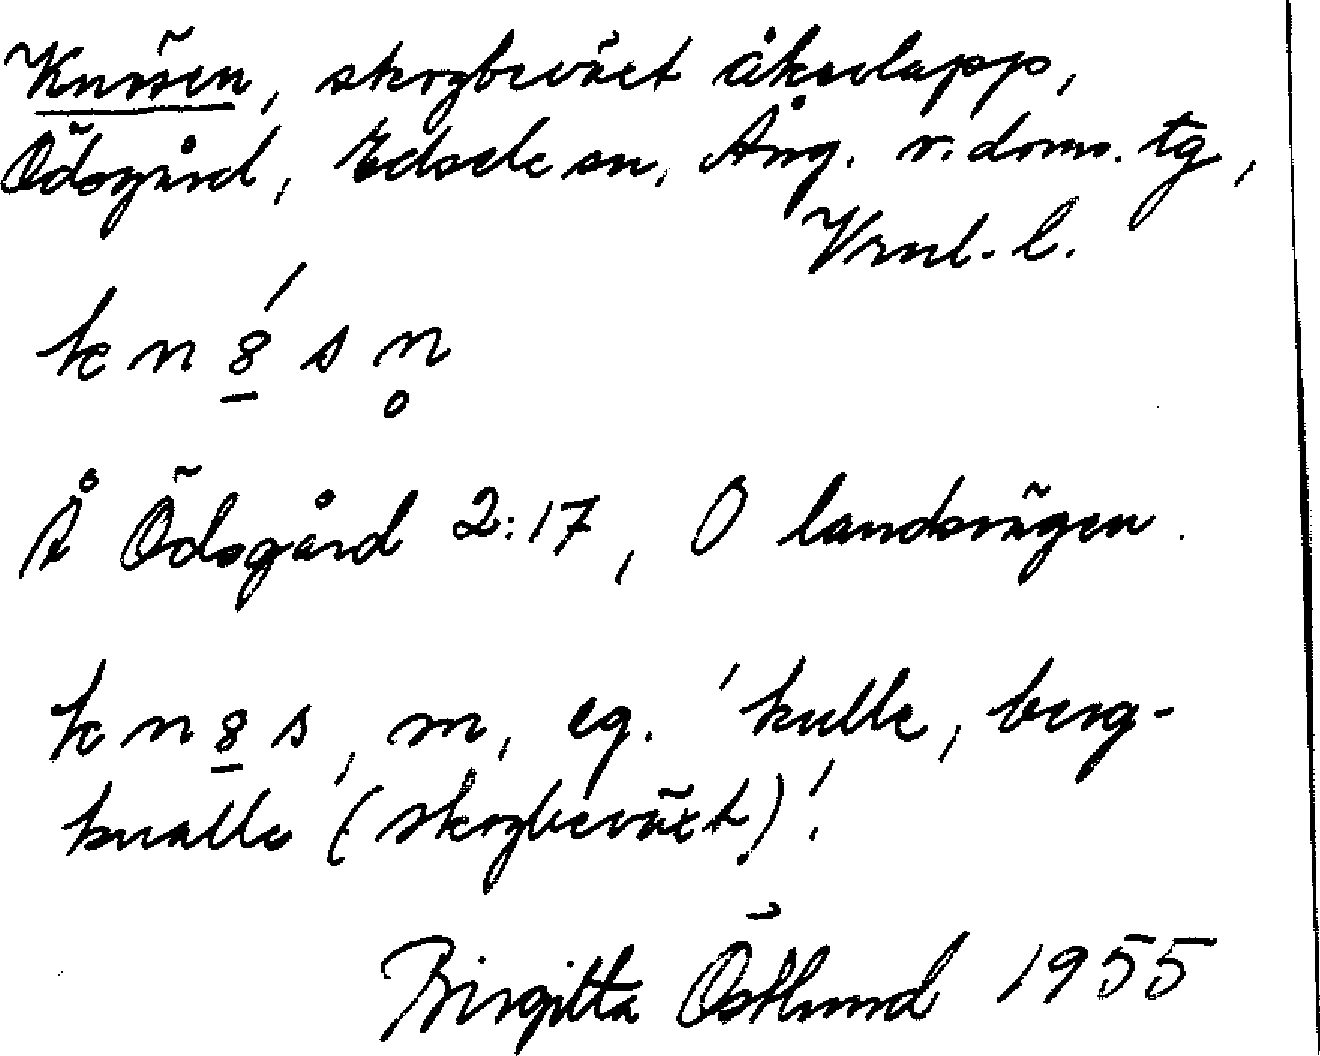 Knösen, skogbeväxt åkerlapp,
Ödsgård, Edsele sn, Ång. v. doms. tg,
Vrnl. l.
k n 8̲́ s n̥
Å Ödsgård 2:17, O landsvägen.
k n 8̲ s, m, eg. 'kulle, berg-
knalle (skogbeväxt)'.
Birgitta Östlund 1955